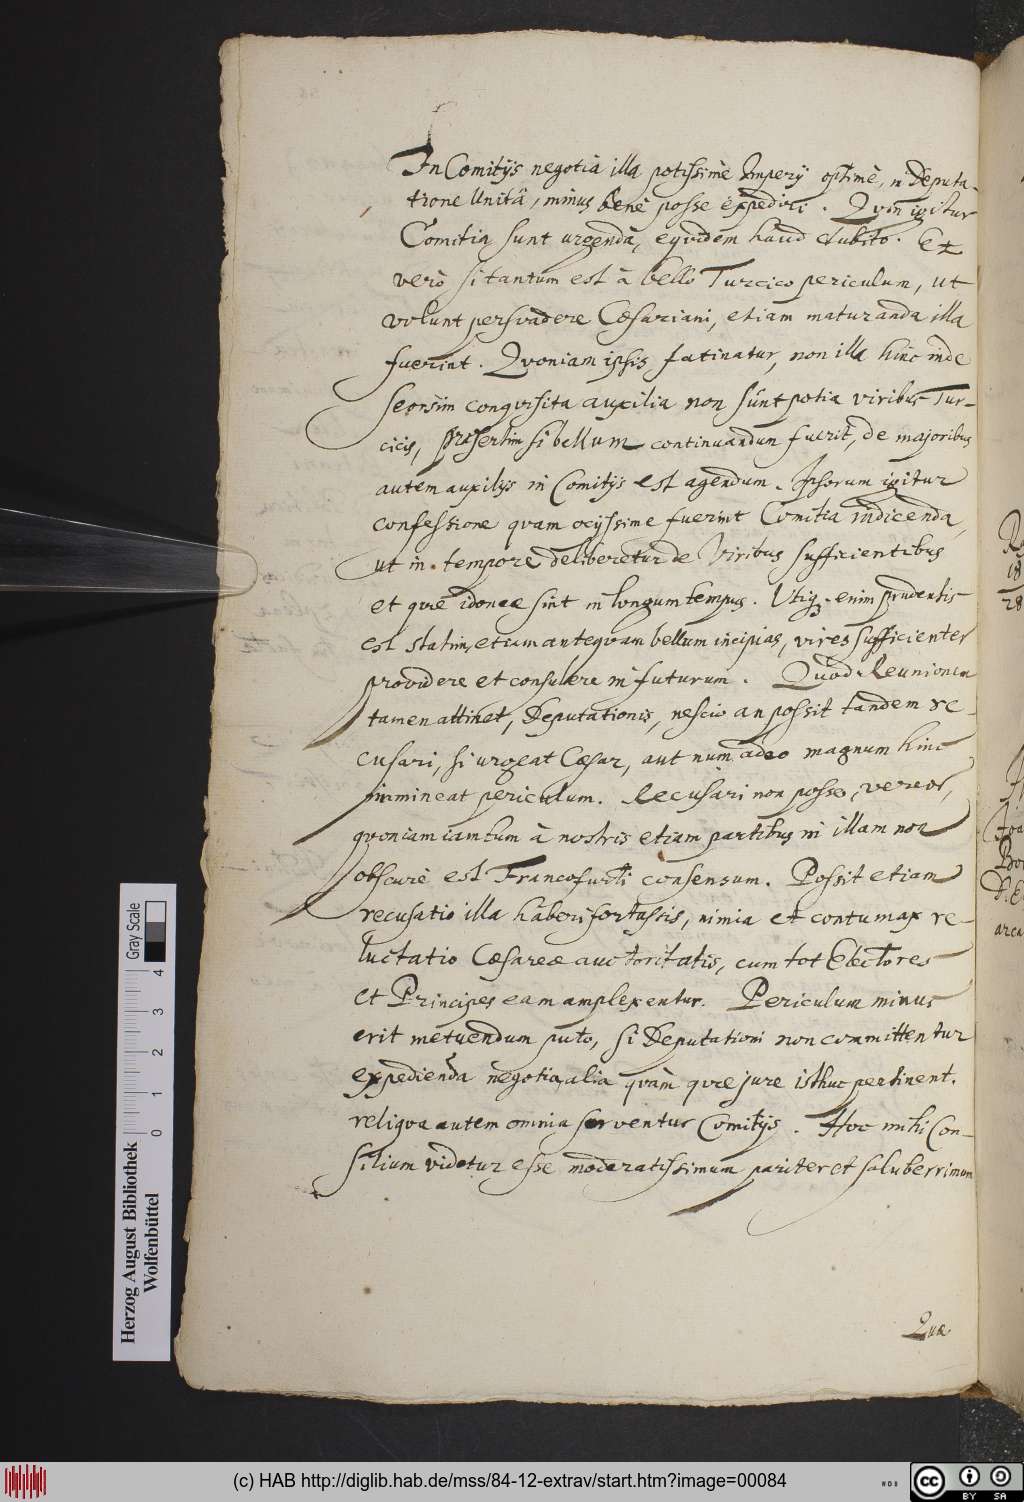 In Comitijs negotia illa potissimè Imperij optimè, in Deputa-
tione Unitâ, minus benè posse expediri. Qvin igitur
Comitia sunt urgenda, eqvidem haud dubito. Et
verò si tantum est à bello Turcico periculum, ut
volunt persvadere Cæsariani, etiam maturanda illa
fuerint. Qvoniam ipsis fatinatur, non illa hinc inde
seorsim conqvisita auxilia non sunt potia viribus Tur-
cicis, præsertim si bellum continuandum fuerit, de majoribus
autem auxilijs in Comitijs est agendum. Ipsorum igitur
confessione qvam ocyssime fuerint Comitia indicenda,
ut in tempore deliberetur de Viribus sufficientibus
et qvæ idoneæ sint in longum tempus. Utiq; enim prudentis
est statim, etiam anteqvam bellum incipias, vires sufficienter
providere et consulere in futurum. Qvod Reunionem
tamen attinet, Deputationis, nescio an possit tandem re-
cusari, si urgeat Cæsar, aut num adeo magnum hinc
immineat periculum. Recusari non posse, vereor,
qvoniam iam tum à nostris etiam partibus in illam non
obscurè est Francofurti consensum. Possit etiam
recusatio illa haberi fortassis, nimia et contumax re-
luctatio Cæsareæ auctoritatis, cum tot Electores
et Principes eam amplexentur. Periculum minus
erit metuendum puto, si Deputationi non committentur
expedienda negotia, alia qvàm qvæ jure isthuc pertinent.
reliqva autem omnia serventur Comitijs. Hoc mihi Con-
silium videtur esse moderatissimum pariter et saluberrimum
Quæ
18
28
Herzog August Bibliothek
Wolfenbüttel
Gray Scale
0 1 2 3 4
(c) HAB http://diglib.hab.de/mss/84-12-extrav/start.htm?image=00084
cc BY SA